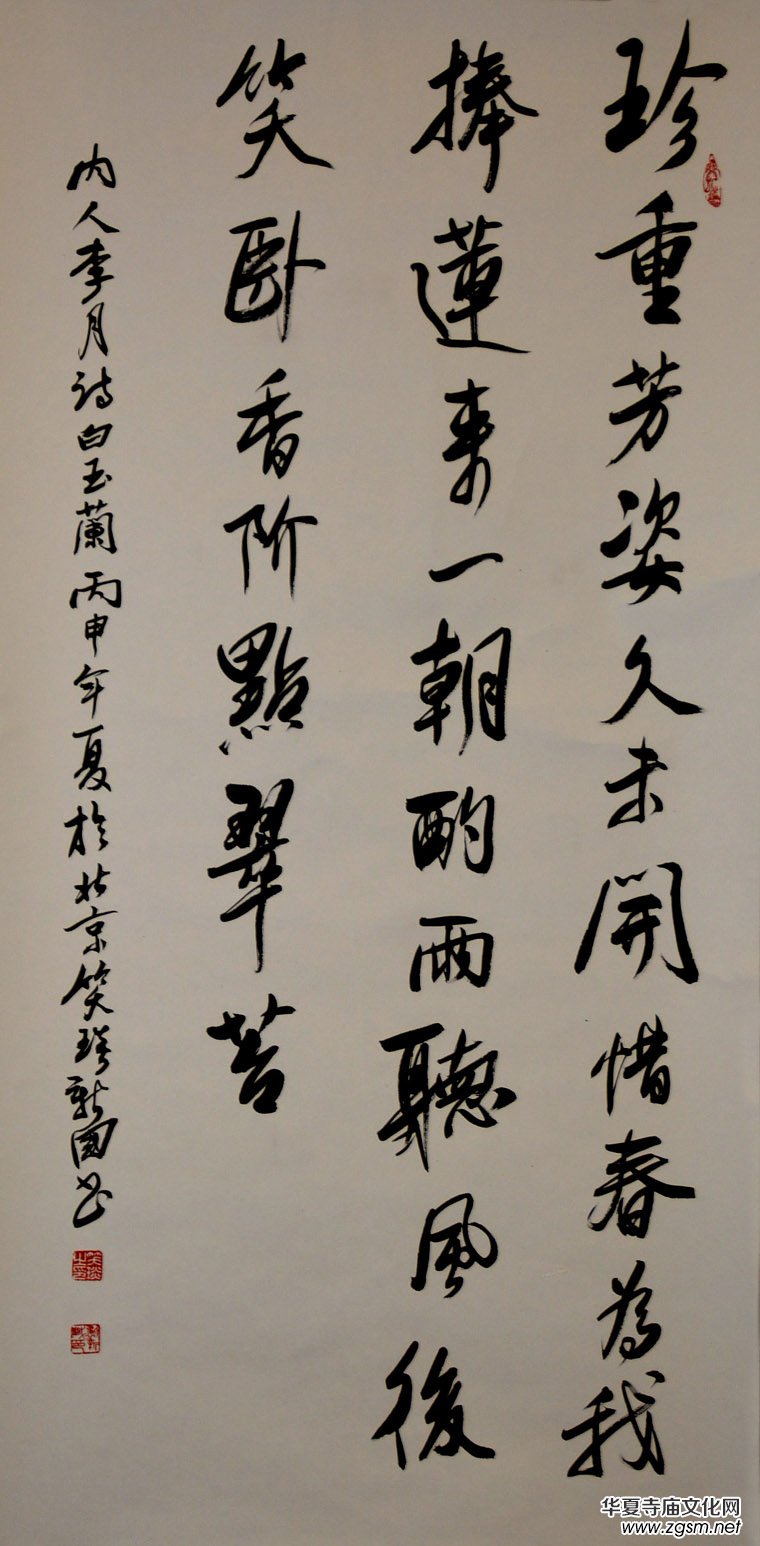 珍重芳姿久未開惜春為我
捧蓮來一朝酌雨聽風後
笑卧香阶點翠苔
内人李月诗白玉蘭丙申年夏於北京笑琰新国书
华夏寺庙文化网
www.zgsm.net